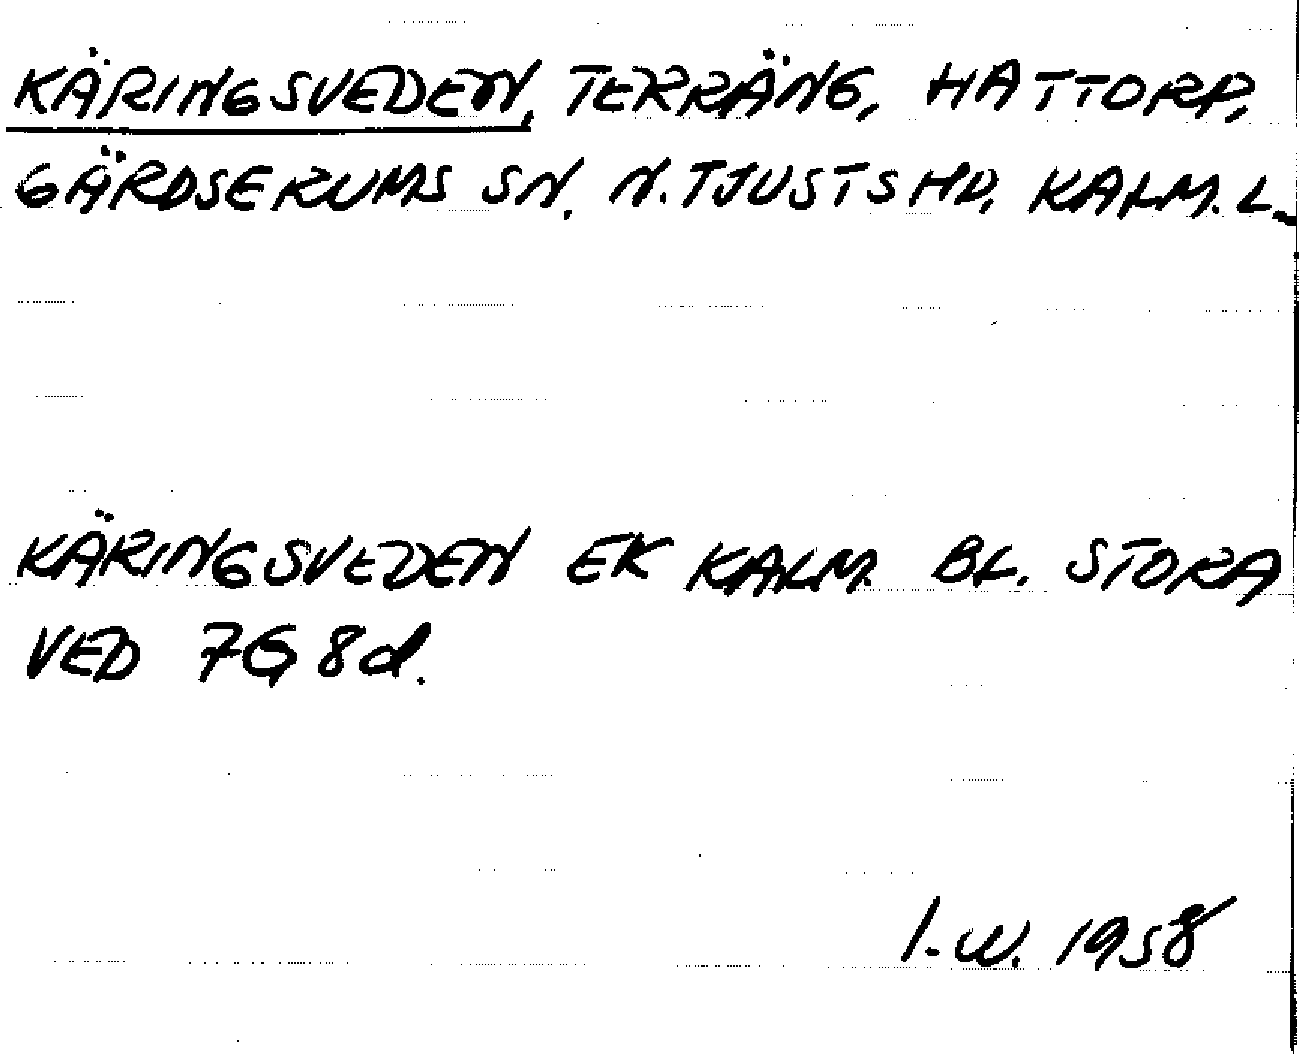 KÄRINGSVEDEN, TERRÄNG, HATTORP,
GÄRDSERUMS SN. N. TJUSTS HD, KALM. L.
KÄRINGSVEDEN EK KALM. BL. STORA
VED 7G 8d.
I.W. 1958